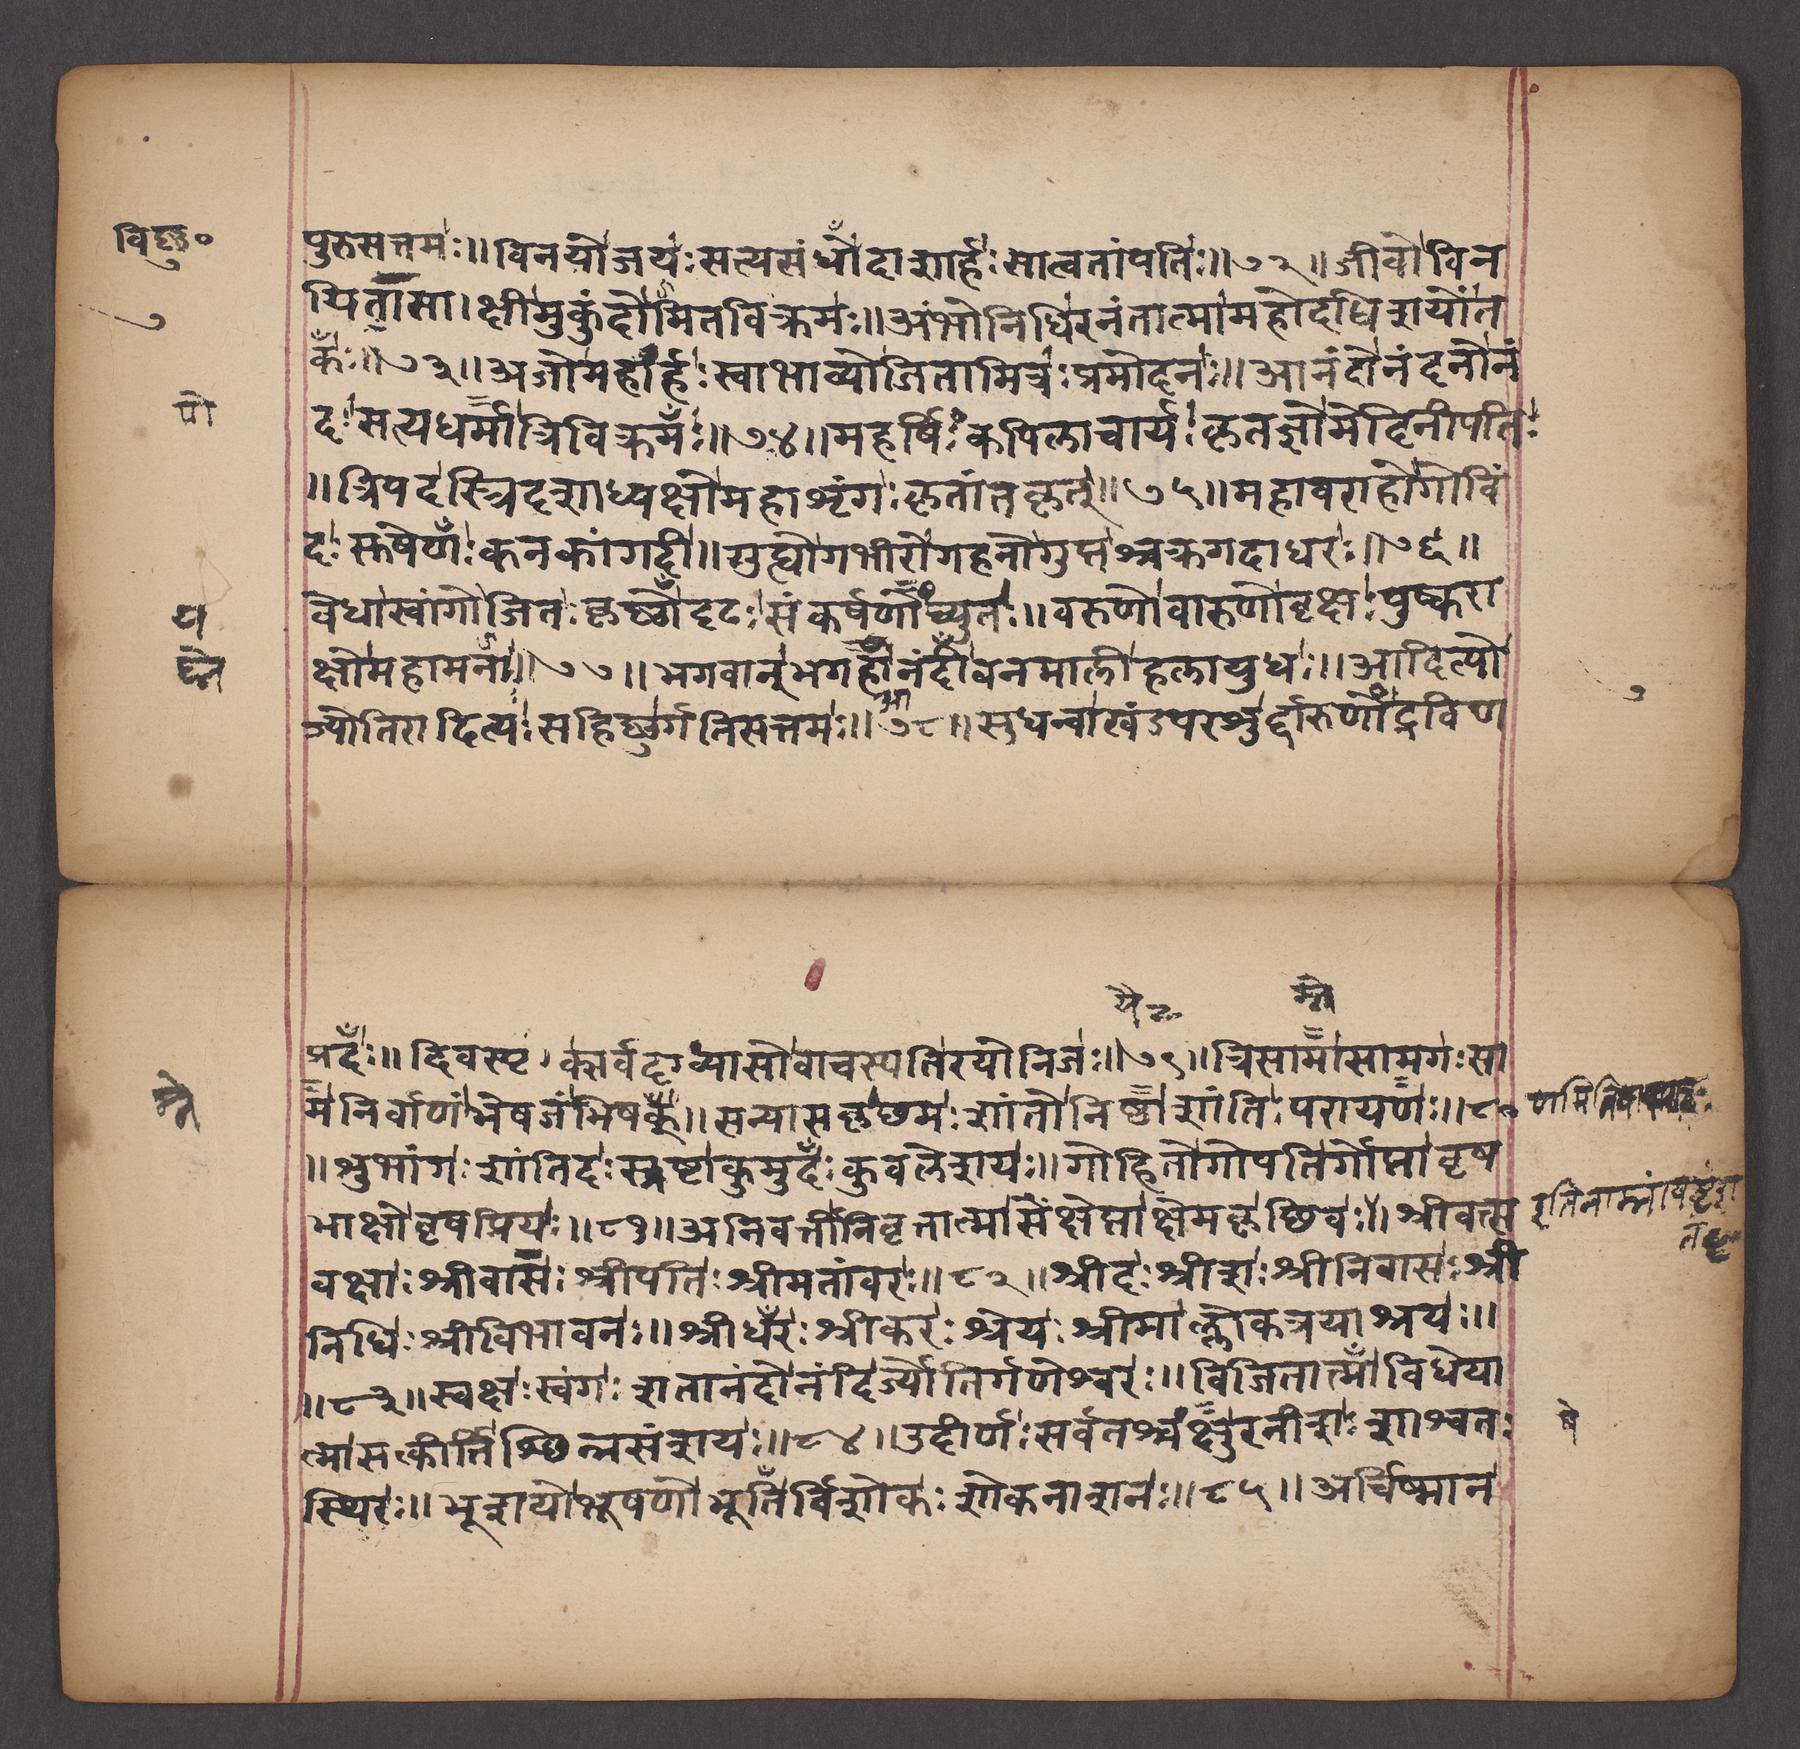 विष्णु०
पुरुसत्तमः॥विनयोजयःसत्यसंधोदाशार्हःसात्वतांपतिः॥७२॥जीवोविन
यितासा।क्षीमुकुंदोमितविक्रमः॥अंभोनिधिरनंतात्मामहोदधिशयोंत
कः॥७३॥अजोमहार्हःस्वाभाव्योजितामित्रःप्रमोदनः॥आनंदोनंदनोनं
दःसत्यधर्मात्रिविक्रमः॥७४॥महर्षिःकपिलाचार्यःकृतज्ञोमेदिनीपतिः
॥त्रिपदस्त्रिदशाध्यक्षोमहाशृंगःकृतांतकृत्॥७५॥महावराहोगोविं
दःसुषेणःकनकांगदी॥गुह्योगभीरोगहनोगुप्तश्चक्रगदाधरः॥७६॥
वेधास्वांगोजितःकृष्णोदृढःसंकर्षणोच्युतः॥वरुणोवारुणोवृक्षःपुष्करा
क्षोमहामनाः॥७७॥भगवान्भगहानंदीवनमालीहलायुधः॥आदित्यो
ज्योतिरादित्यःसहिष्णुर्गतिसत्तमः॥७८॥सुधन्वाखंडपरशुर्द्दारुणोद्रविण
प्रदः॥दिवस्पृक्सर्वदृग्व्यासोवाचस्पतिरयोनिजः॥७९॥त्रिसामासामगःसा
मनिर्वाणंभेषजंभिषक्॥सन्यासकृछमःशांतोनिष्ठाशांतिःपरायणः॥८०
॥शुभांगःशांतिदःस्रष्टाकुमुदःकुवलेशयः॥गोहितोगोपतिर्गोप्तावृष
भाक्षोवृषप्रियः॥८१॥अनिवर्त्तीनिवृत्तात्मासंक्षेप्ताक्षेमकृछिवः॥श्रीवत्स
वक्षाःश्रीवासःश्रीपतिःश्रीमतांवरः॥८२॥श्रीदःश्रीशःश्रीनिवासःश्री
निधिःश्रीविभावनः॥श्रीधरःश्रीकरःश्रेयःश्रीमाल्लोकत्रयाश्रयः॥
॥८३॥स्वक्षःस्वंगःशतानंदोनंदिर्ज्योतिर्गणेश्वरः॥विजितात्माविधेया
त्मासत्कीर्तिश्छिन्नसंशयः॥८४॥उदीर्णःसर्वतश्चक्षुरनीशःशाश्वतः
स्थिरः॥भूशयोभूषणोभूतिर्विशोकःशोकनाशनः॥८५॥अर्चिष्मान